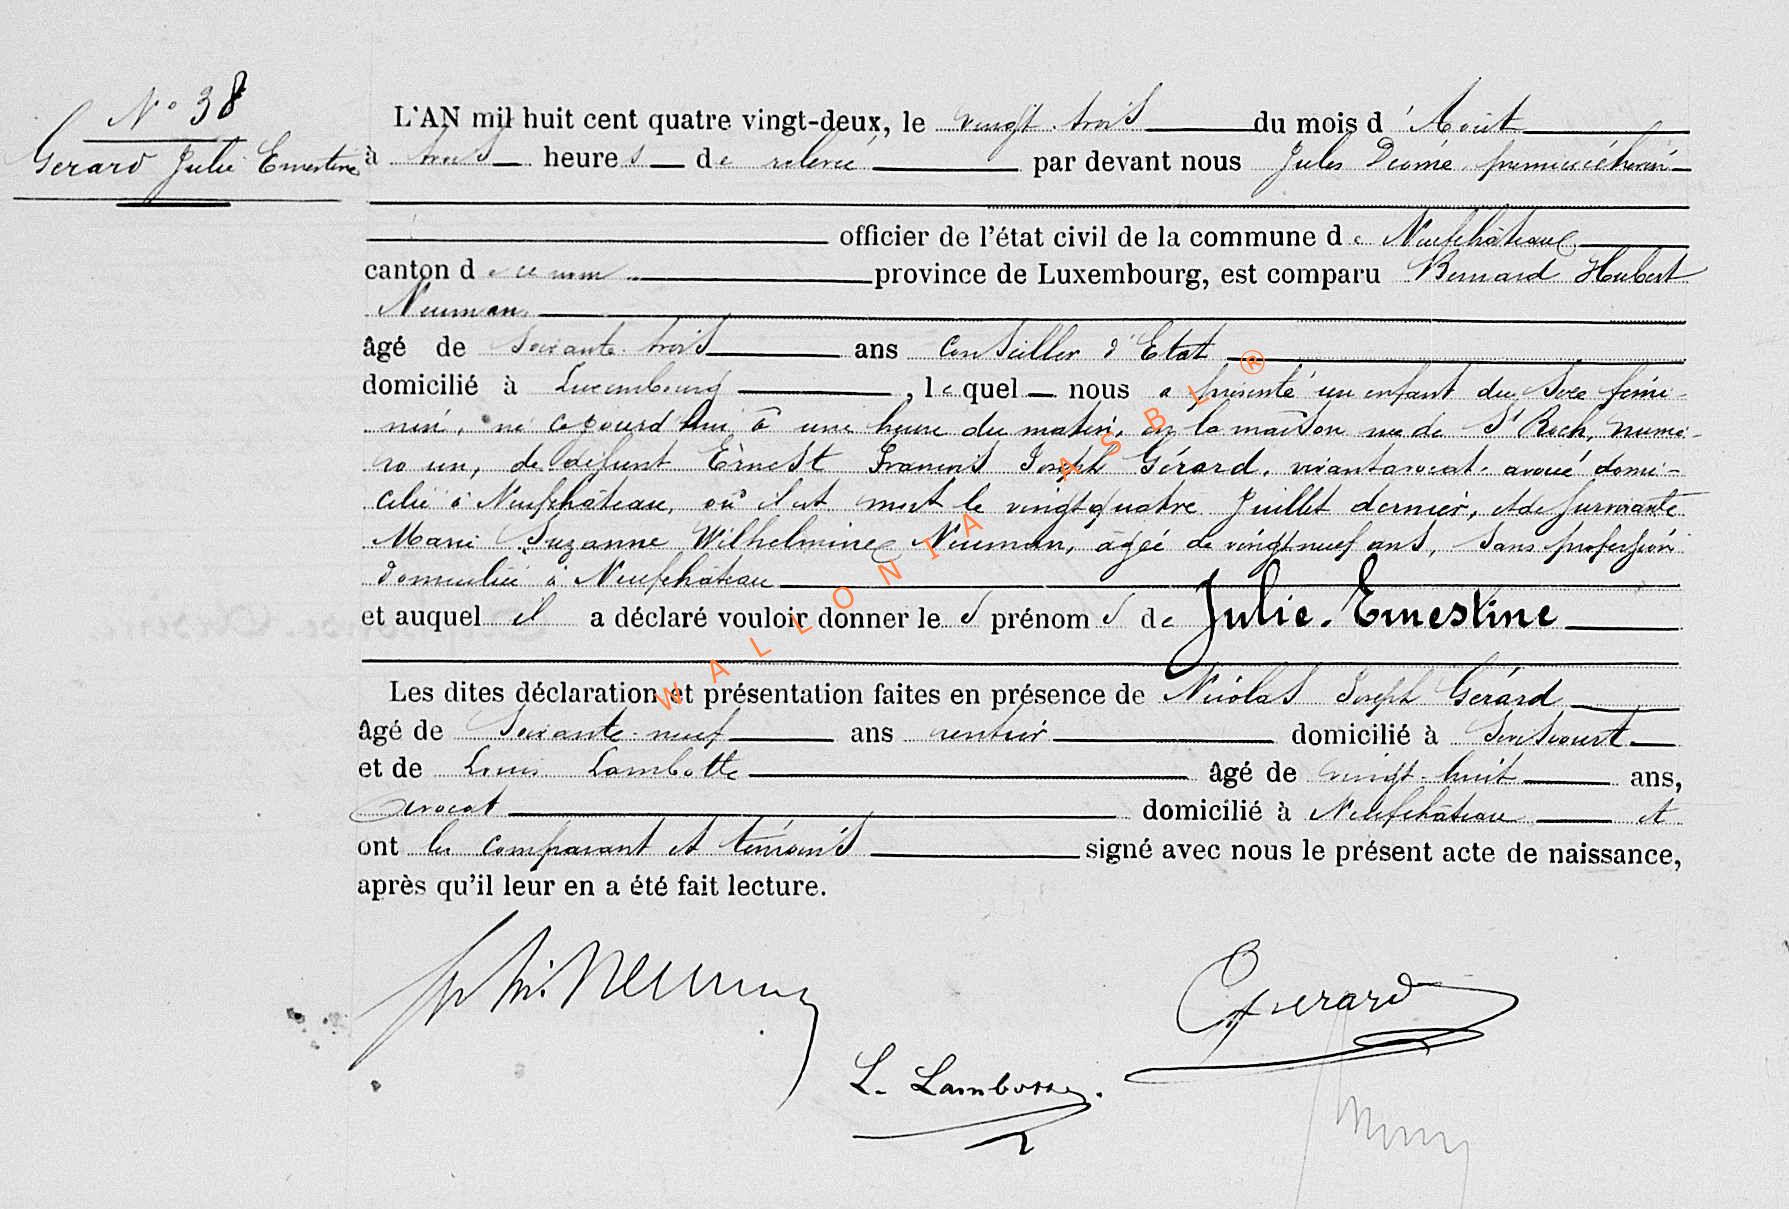 N° 38
Gerard Julie Ernestine
L'AN mil huit cent quatre vingt-deux, le vingt trois du mois d'Aout
à trois heures de relevée par devant nous Jules premier échevin
officier de l'état civil de la commune de Neufchâteau
canton de ce nom province de Luxembourg, est comparu Bernard Hubert
Neuman
âgé de soixante trois ans Conseiller d'Etat
domicilié à Luxembourg, lequel nous a présenté un enfant du sexe fémi-
nin, né cejourd'hui à une heure du matin, en la maison rue de St Roch, numé-
ro un, de défunt Ernest François Joseph Gérard, vivant avocat-avoué domi-
cilié à Neufchâteau, où il est mort le vingt quatre Juillet dernier, et de survivante
Marie Suzanne Wilhelmine Neuman, âgée de vingt neuf ans, sans profession
domiciliée à Neufchâteau
et auquel il a déclaré vouloir donner les prénoms de Julie-Ernestine
Les dites déclaration et présentation faites en présence de Nicolas Joseph Gérard
âgé de soixante-neuf ans rentier domicilié à
et de Louis Lambotte âgé de vingt-huit ans,
avocat domicilié à Neufchâteau et
ont les comparant et témoins signé avec nous le présent acte de naissance,
après qu'il leur en a été fait lecture.
Neuman
Gerard
L. Lambotte.
WALLONIA ASBL ®